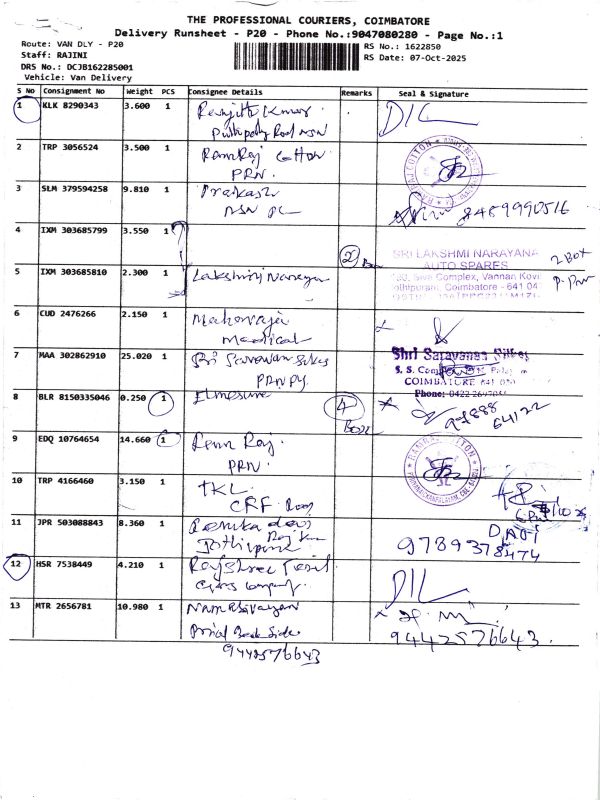 THE PROFESSIONAL COURIERS, COIMBATORE
Delivery Runsheet - P20 - Phone No.:9047080280 - Page No.:1
Route: VAN DLY - P20
RS No.: 1622850
Staff: RAJINI
RS Date: 07-Oct-2025
DRS No.: DCJB162285001
Vehicle: Van Delivery
S No Consignment No Weight PCS Consignee Details Remarks Seal & Signature
1 KLK 8290343 3.600 1 Ranjith Kumar
2 TRP 3056524 3.500 1 RamRaj Cotton
PRN.
3 SLM 379594258 9.810 1 Prakash
8489990516
4 IXM 303685799 3.550 1
2 Box
SRI LAKSHMI NARAYANA
AUTO SPARES
2 Box
5 IXM 303685810 2.300 1 Lakshmi Narayan
Complex, Vannan Kovil
Coimbatore - 641 04
6 CUD 2476266 2.150 1 Maharaja
Medical
7 MAA 302862910 25.020 1 Sri Saravana Silks
Shri Saravanaa Silks
S. S. Complex
COIMBATORE 641 020
Phone: 0422
8 BLR 8150335046 0.250 1
4
Box
97888
64122
9 EDQ 10764654 14.660 1 Ram Raj.
PRN.
RAMRAJ COTTON
10 TRP 4166460 3.150 1 TKL
CRF Road
11 JPR 503088843 8.360 1 Renuka devi
9789378474
12 HSR 7538449 4.210 1 Rajshree
DIL
13 MTR 2656781 10.980 1 Namasivayam
Back Side
9442576643.
9442576643